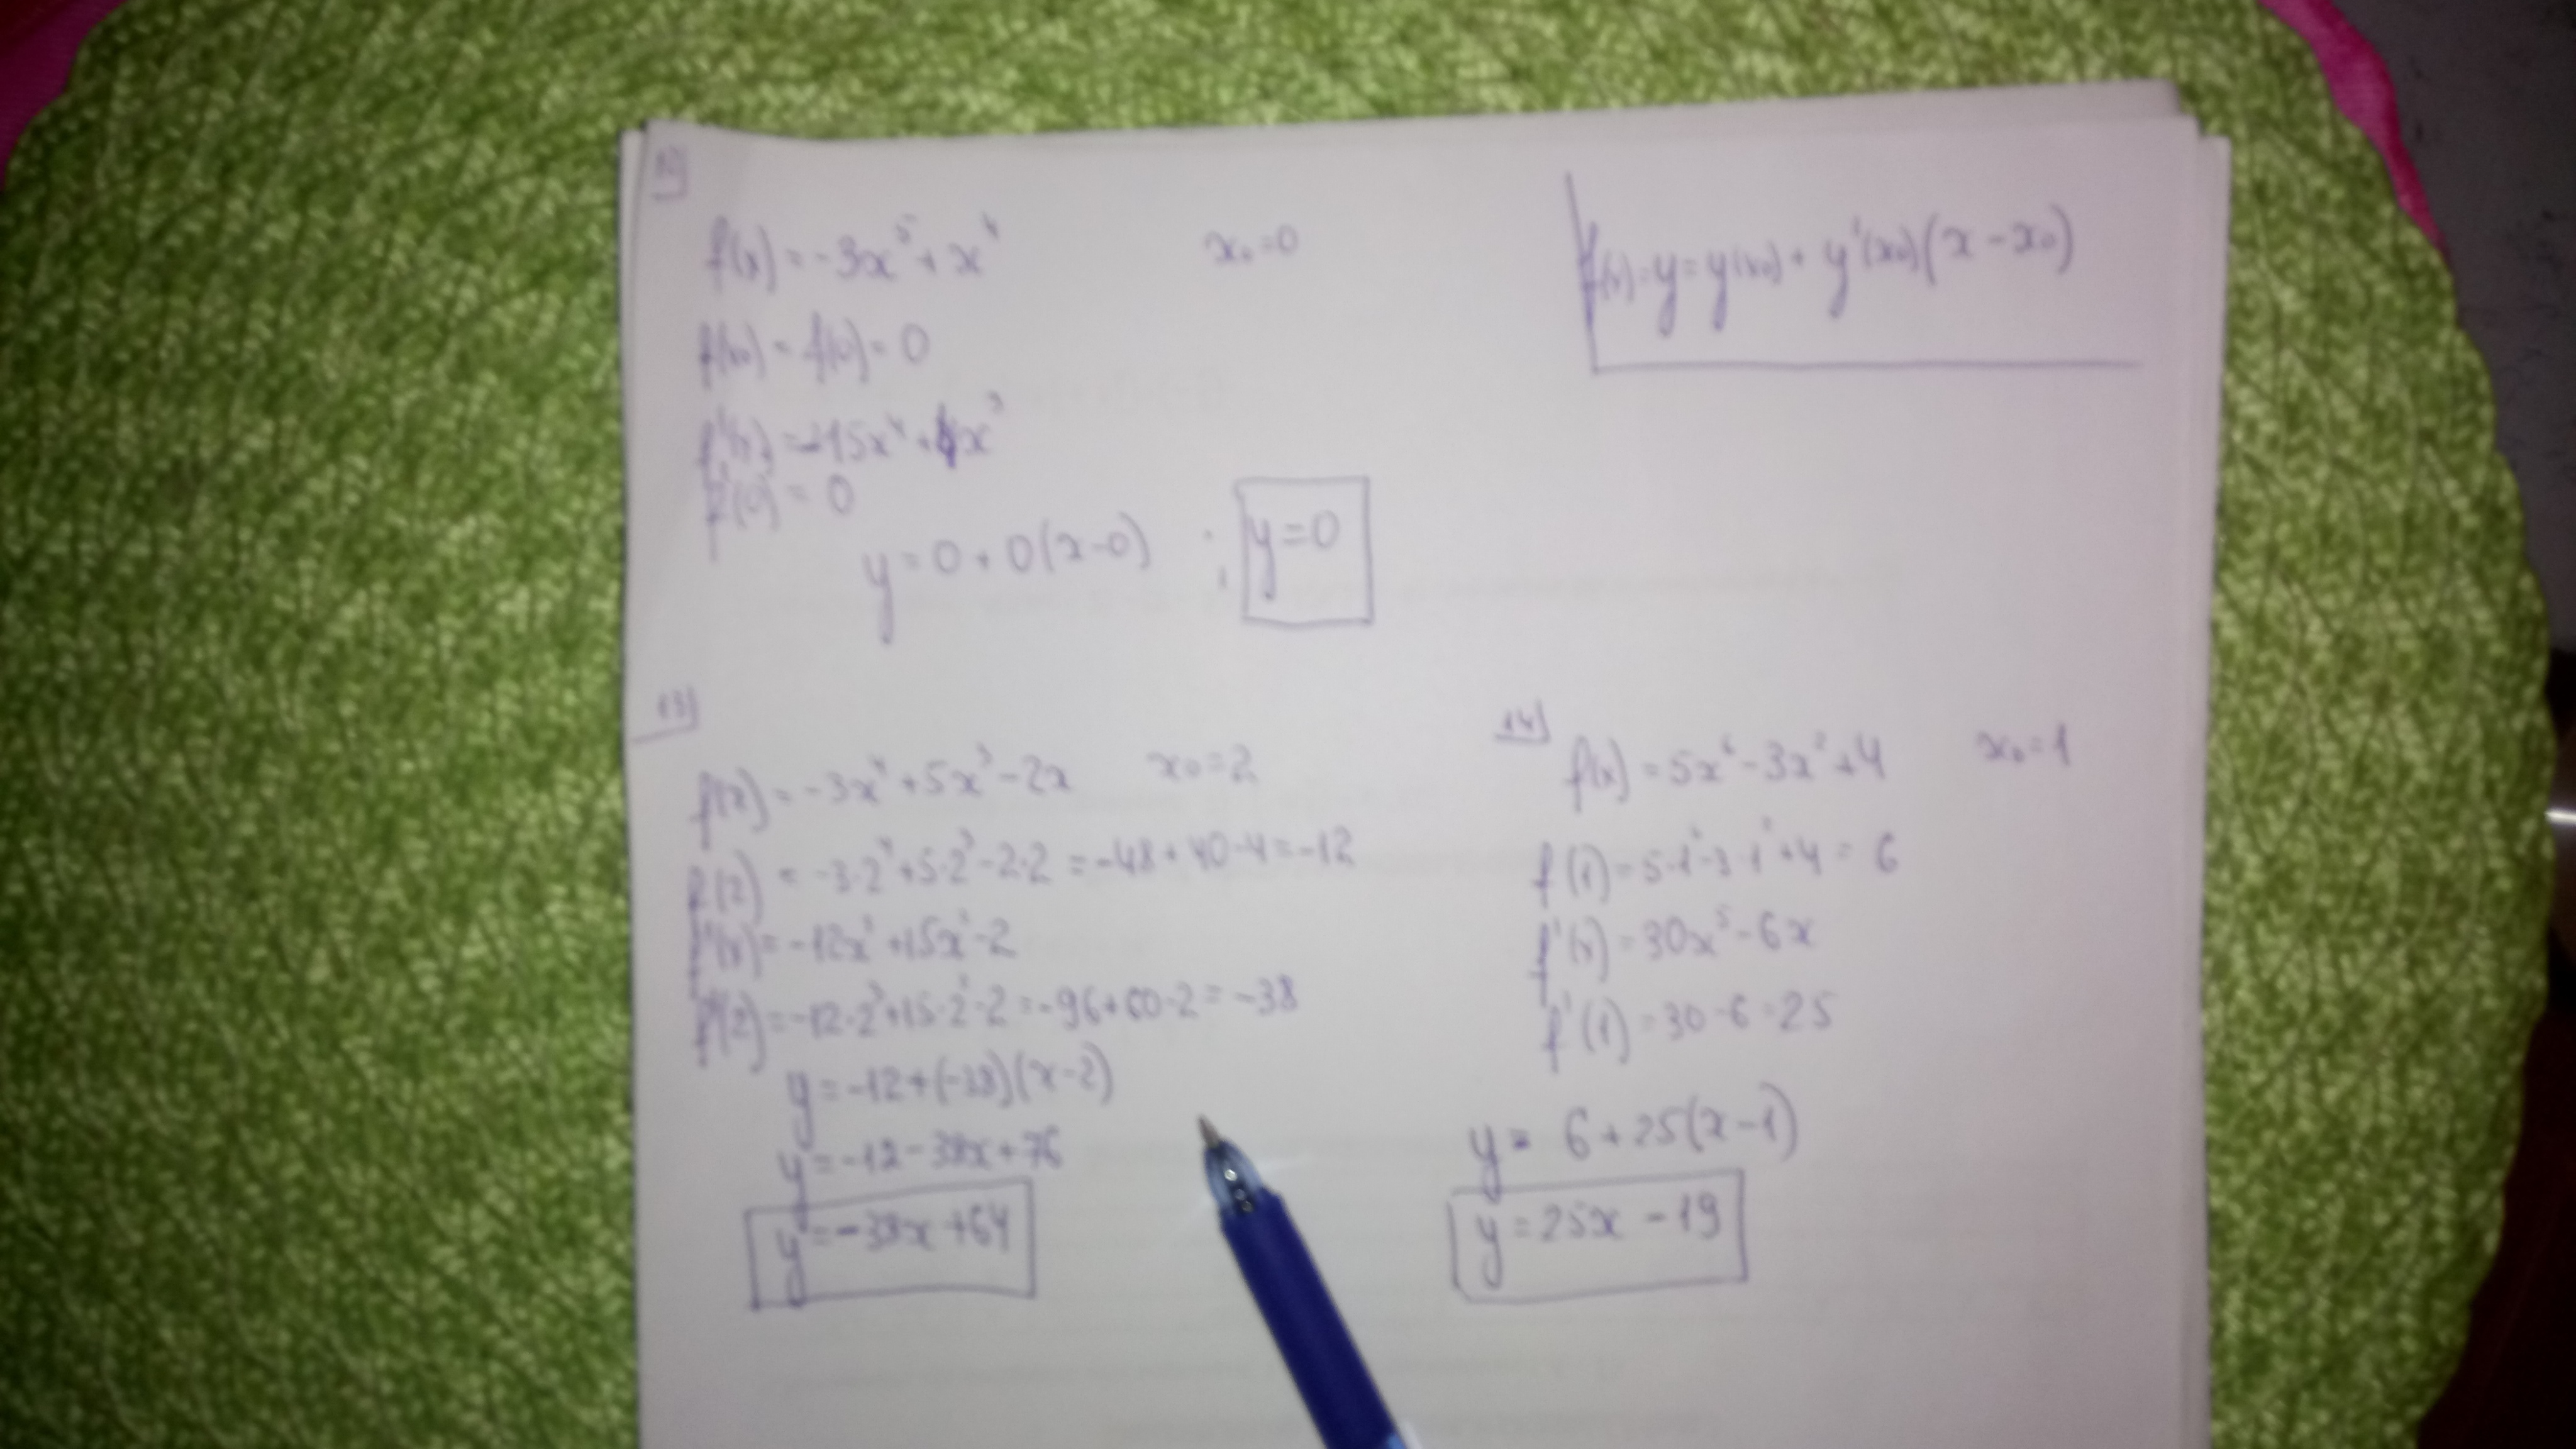 12)
f(x) = -3x⁵ + x⁴ x₀ = 0
f(x) = y = y(x₀) + y'(x₀)(x - x₀)
f(x₀) = f(0) = 0
f'(x) = -15x⁴ + 4x³
f'(0) = 0
y = 0 + 0(x-0) ; y = 0
13)
f(x) = -3x⁴ + 5x³ - 2x x₀ = 2
f(2) = -3·2⁴ + 5·2³ - 2·2 = -48 + 40 - 4 = -12
f'(x) = -12x³ + 15x² - 2
f'(2) = -12·2³ + 15·2² - 2 = -96 + 60 - 2 = -38
y = -12 + (-38)(x-2)
y = -12 - 38x + 76
y = -38x + 64
14)
f(x) = 5x⁶ - 3x² + 4 x₀ = 1
f(1) = 5·1⁶ - 3·1² + 4 = 6
f'(x) = 30x⁵ - 6x
f'(1) = 30 - 6 = 25
y = 6 + 25(x-1)
y = 25x - 19